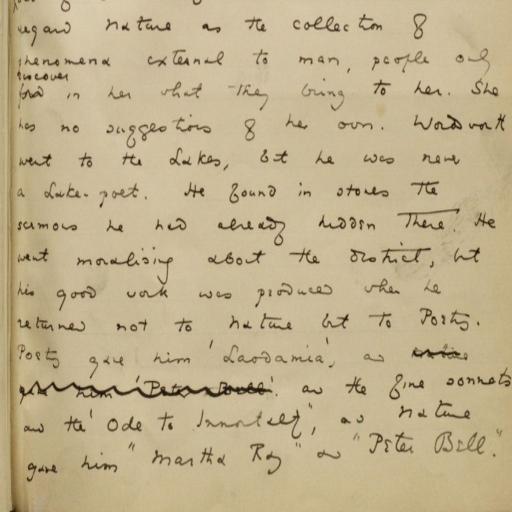 regard Nature as the collection of
phenomena external to man, people only
discover
in her what they bring to her. She
has no suggestions of her own. Wordsworth
went to the Lakes, but he was never
a Lake-poet. He found in stones the
sermons he had already hidden there. He
went moralising about the district, but
his good work was produced when he
returned not to Nature but to Poetry.
Poetry gave him 'Laodamia', and
gave him 'Peter Bell'. and the fine sonnets
and the 'Ode to Immortality', as Nature
gave him "Martha Ray" and "Peter Bell".